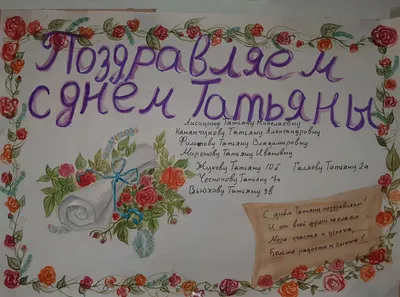 Поздравляем
с днём Татьяны
Лисицину Татьяну Николаевну
Каманчукову Татьяну Александровну
Филипову Татьяну Владимировну
Миронову Татьяну Ивановну
Жукову Татьяну 10б Галяеву Татьяну 2а
Чеснокову Татьяну 7а
Вьюхову Татьяну 3в
С днём Татьяны поздравляем!
И от всей души желаем
Моря счастья и успеха,
Больше радости и смеха!